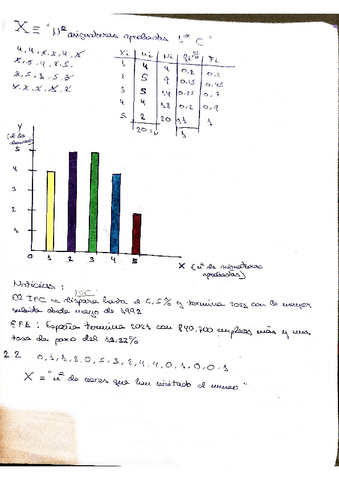 X ≡ "Nº asignaturas aprobadas 1er C"
xi ni Ni fi Fi
1 4 4 0,2 0,2
2 5 9 0,25 0,45
3 5 14 0,25 0,7
4 4 18 0,2 0,9
5 2 20 0,1 1
20 = N 1
Y
5
4
3
2
1
0 1 2 3 4 5
X (nº de asignaturas
aprobadas)
Noticias:
El IPC se dispara hasta el 6,5% y termina 2021 con la mayor
subida desde mayo de 1992
EPA: España termina 2021 con 840.700 empleos más y una
tasa de paro del 13,33%
2.2 0, 1, 1, 2, 0, 5, 3, 2, 4, 4, 0, 1, 0, 0, 1
X ≡ "nº de veces que han visitado el museo"